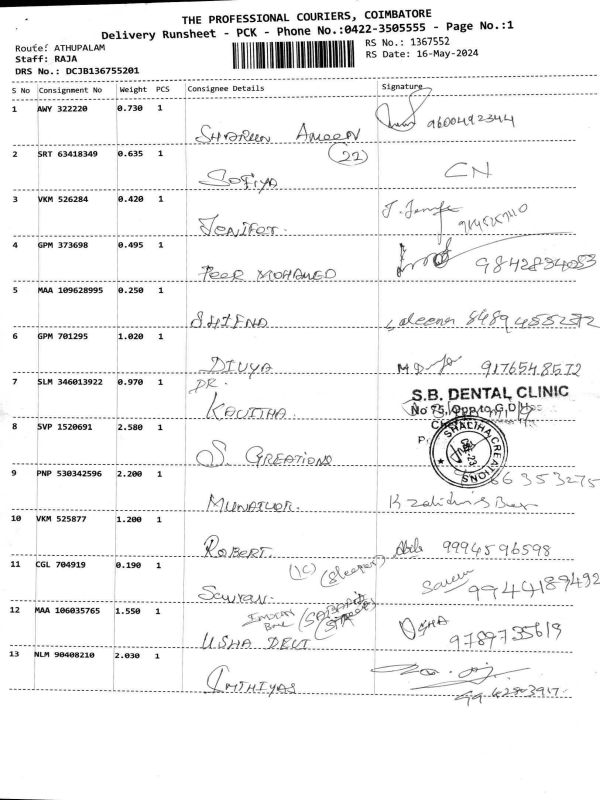 THE PROFESSIONAL COURIERS, COIMBATORE
Delivery Runsheet - PCK - Phone No.:0422-3505555 - Page No.:1
Route: ATHUPALAM
RS No.: 1367552
Staff: RAJA
RS Date: 16-May-2024
DRS No.: DCJB136755201
S No Consignment No Weight PCS Consignee Details Signature
1 AWY 322220 0.730 1
SHAREEN AMEEN 9600492344
2 SRT 63418349 0.635 1 (22)
SOFIYA CN
3 VKM 526284 0.420 1
JENIFER.
4 GPM 373698 0.495 1
PEER MOHAMED 9842834053
5 MAA 109628995 0.250 1
8489455272
6 GPM 701295 1.020 1
DIVYA 9176548572
7 SLM 346013922 0.970 1 DR.
KAVITHA S.B. DENTAL CLINIC
No 75, Opp to G.D
8 SVP 1520691 2.580 1
S. CREATIONS SHALIHA CREATIONS
9 PNP 530342596 2.200 1 66353275
10 VKM 525877 1.200 1
ROBERT. 9994596598
11 CGL 704919 0.190 1 (1C) (Sleeper)
9944189492
12 MAA 106035765 1.550 1 INDIAN
USHA DEVI USHA 9789735619
13 NLM 90408210 2.030 1
IMTHIYAS